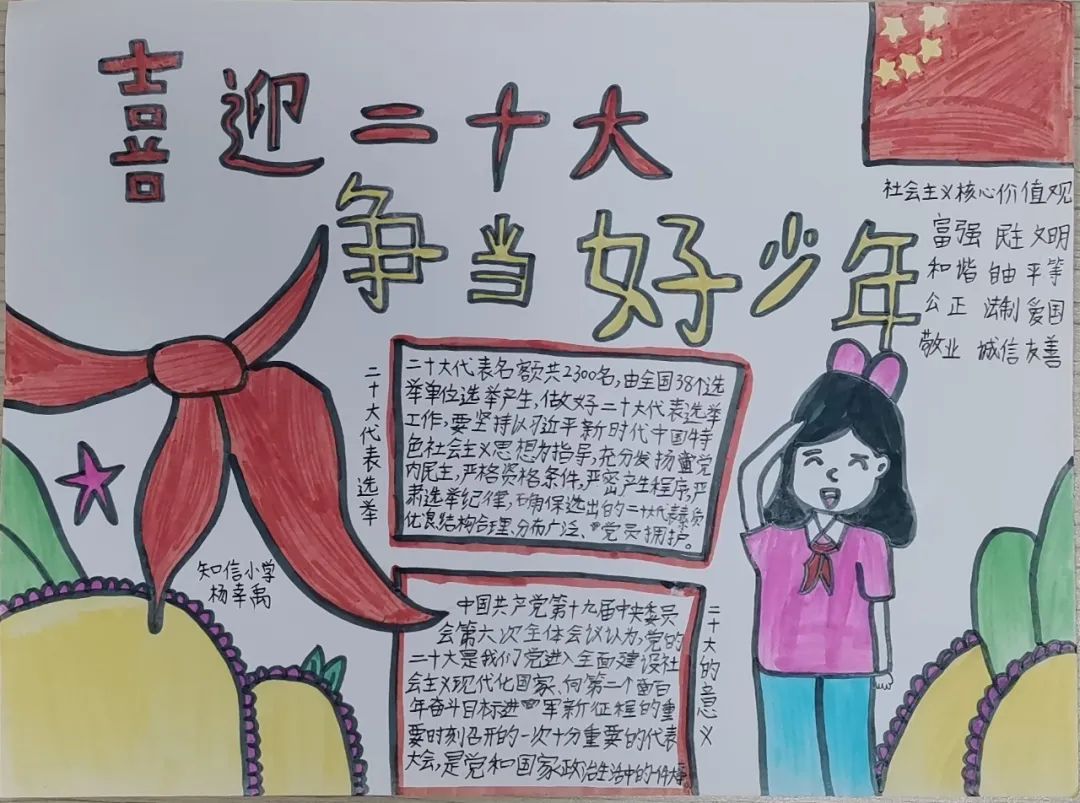 喜迎二十大
争当好少年
社会主义核心价值观
富强 民主 文明
和谐 自由 平等
公正 法制 爱国
敬业 诚信 友善
二十大代表选举
二十大代表名额共2300名,由全国38个选
举单位选举产生,做好二十大代表选举
工作,要坚持以习近平新时代中国特
色社会主义思想为指导,充分发扬党
内民主,严格资格条件,严密产生程序,严
肃选举纪律,确保选出的二十大代表素质
优良,结构合理、分布广泛、党员拥护。
知信小学
杨幸禹
二十大的意义
中国共产党第十九届中央委员
会第六次主体会议认为,党的
二十大是我们党进入全面建设社
会主义现代化国家、向第二个百
年奋斗目标进军新征程的重
要时刻召开的一次十分重要的代表
大会,是党和国家政治生活中的一件大事